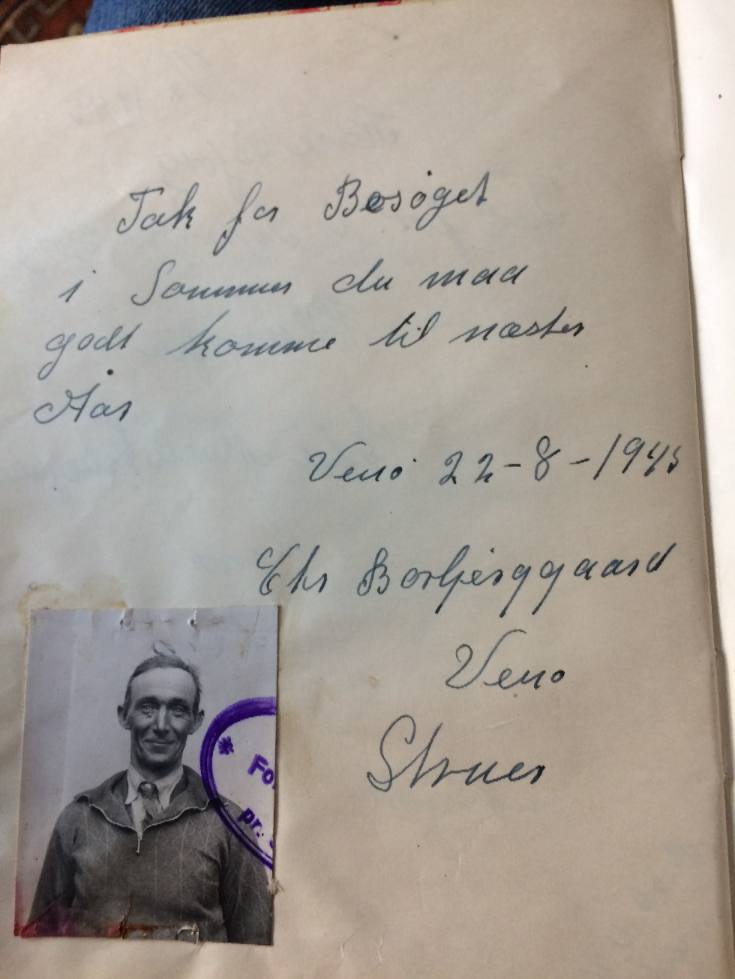 Tak for Besøget
i Sommer du maa
godt komme til næster
Aar
Venø 22-8-1945
Chr Borbjerggaard
Venø
Struer
* Fo
pr. S